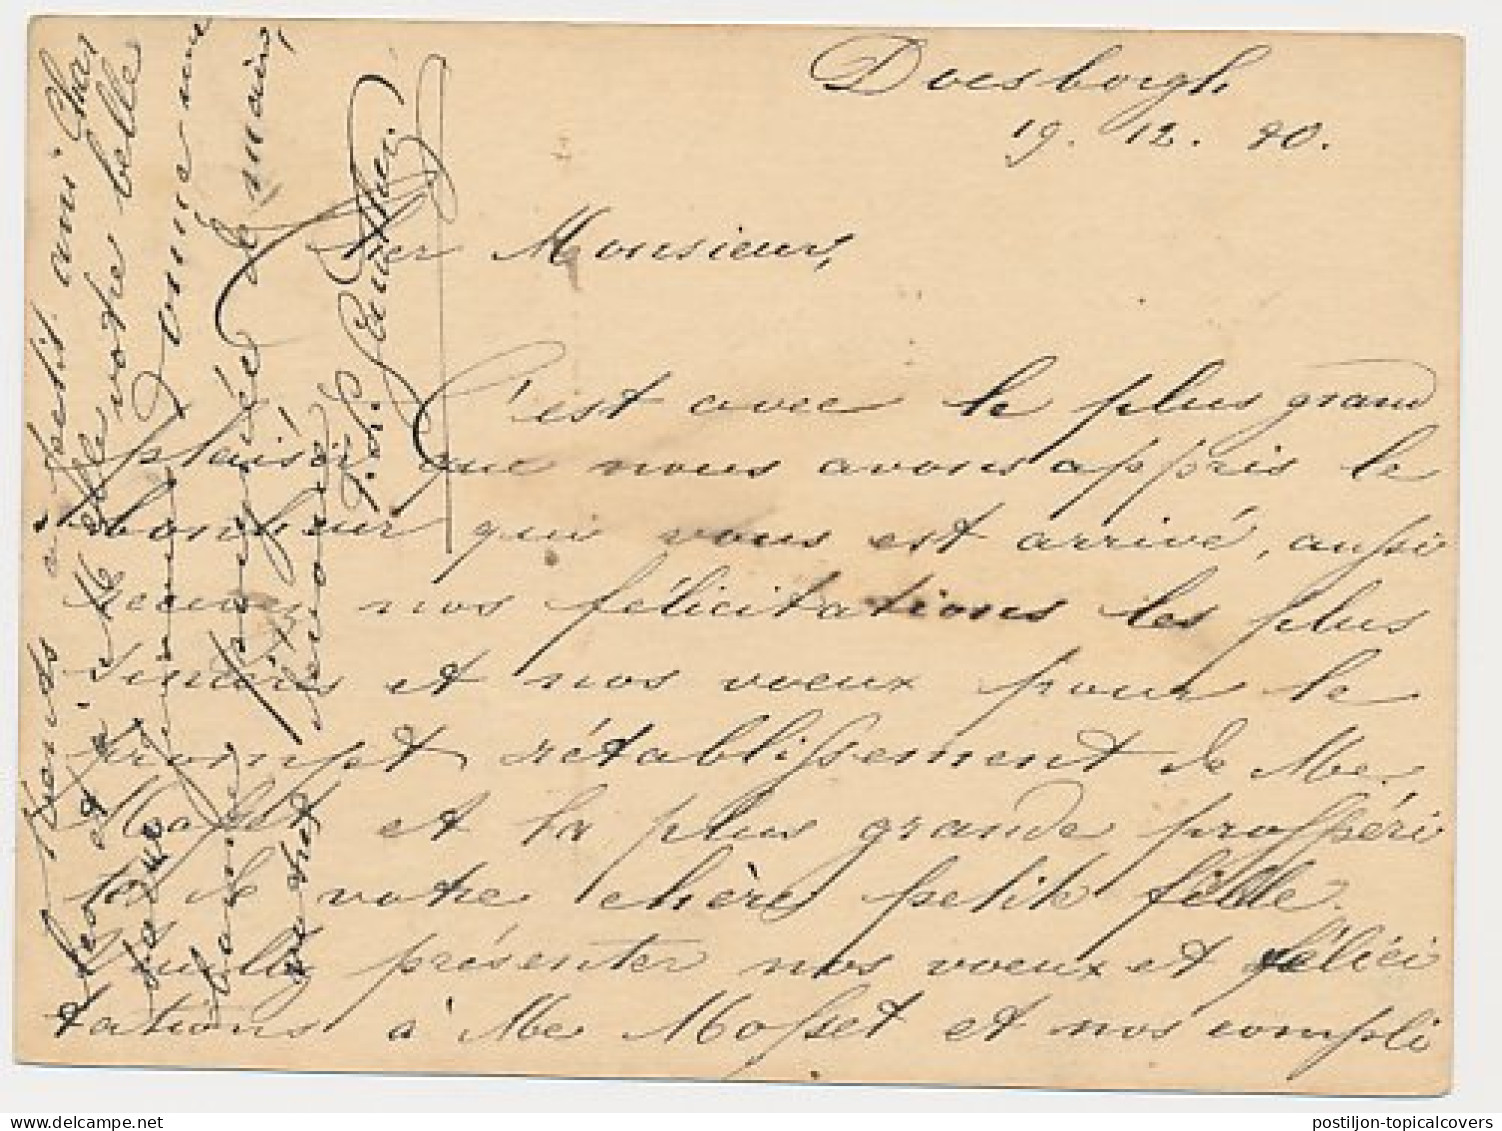 Doesborgh
19. 12. 80.
Cher Monsieur,
C'est avec le plus grand
plaisir que nous avons appris le
bonheur qui vous est arrivé, aussi
recevez nos félicitations les plus
sincères et nos voeux pour le
prompt rétablissement de Me
Mosset et la plus grande prospéri
té de votre chère petite fille.
Veuillez présenter nos voeux et félici
tations à Me Mosset et nos compli
ments au petit ami Char
les et à Me votre belle
Comme une
poignée de main,
votre dévoué
postiljon-topicalcovers